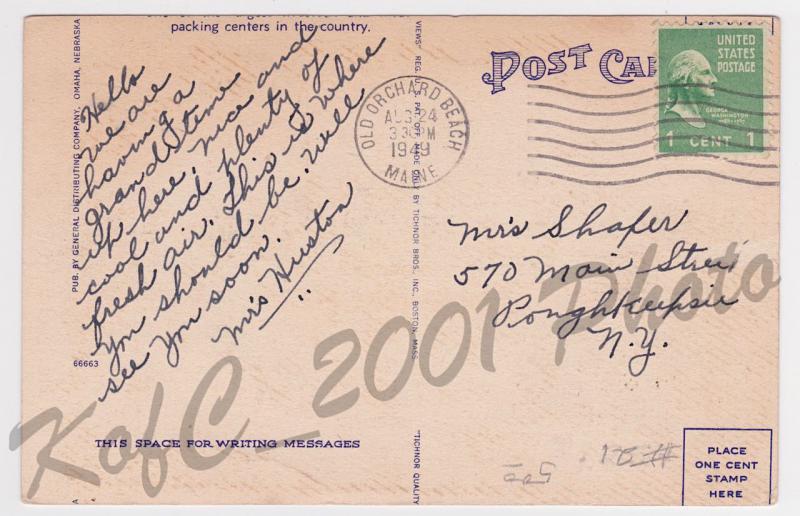 packing centers in the country.
Hello
We are
having a
grand time
up here, nice and
cool and plenty of
fresh air. This is where
you should be. Will
see you soon.
Mrs Huston
66663
THIS SPACE FOR WRITING MESSAGES
PUB. BY GENERAL DISTRIBUTING COMPANY, OMAHA, NEBRASKA
MADE ONLY BY TICHNOR BROS., INC., BOSTON, MASS.
"TICHNOR QUALITY
POST
OLD ORCHARD BEACH
AUG 24
3 30 PM
1949
MAINE
UNITED
STATES
POSTAGE
GEORGE
WASHINGTON
1 CENT 1
Mrs Shafer
570 Main Street
Poughkeepsie
N.Y.
PLACE
ONE CENT
STAMP
HERE
KofC_2001 Photo